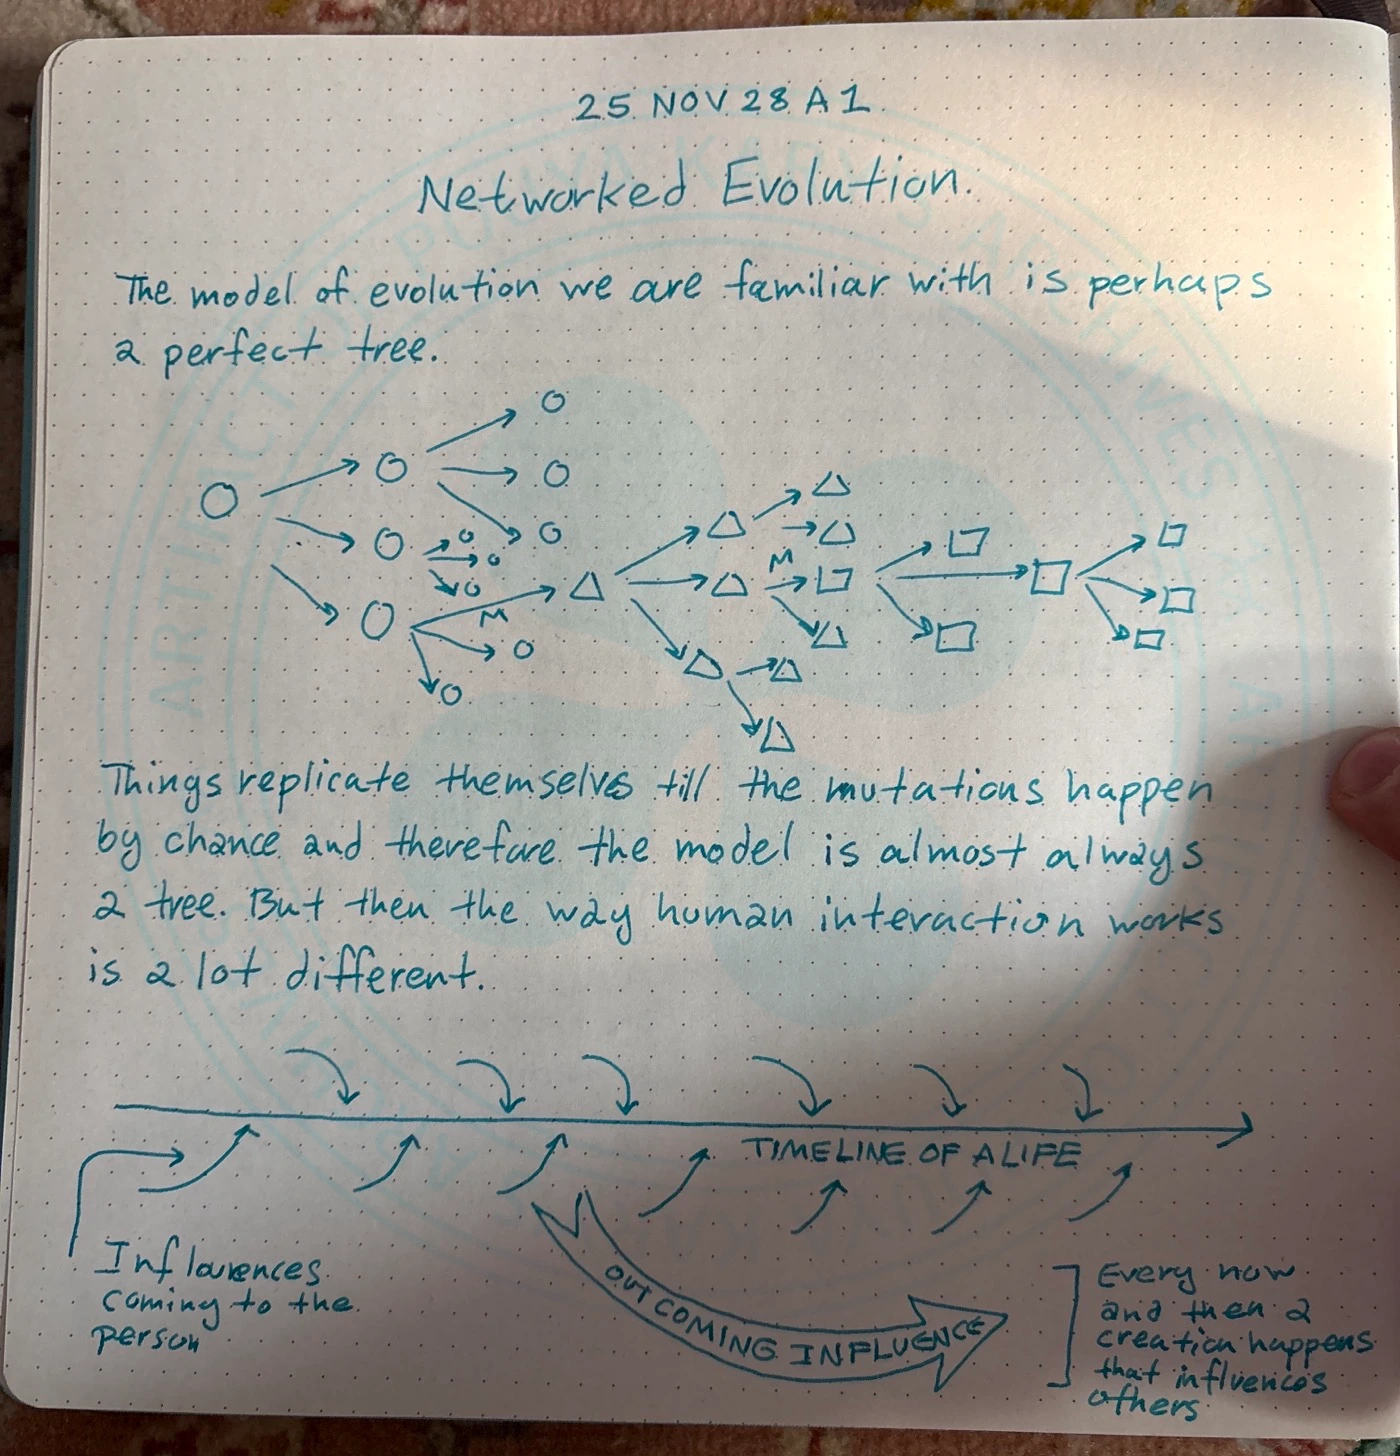 25 NOV 28 A 1
Networked Evolution.
The model of evolution we are familiar with is perhaps
a perfect tree.
M
M
Things replicate themselves till the mutations happen
by chance and therefore the model is almost always
a tree. But then the way human interaction works
is a lot different.
TIMELINE OF A LIFE
Influences
coming to the
person
OUT COMING INFLUENCE
Every now
and then a
creation happens
that influences
others